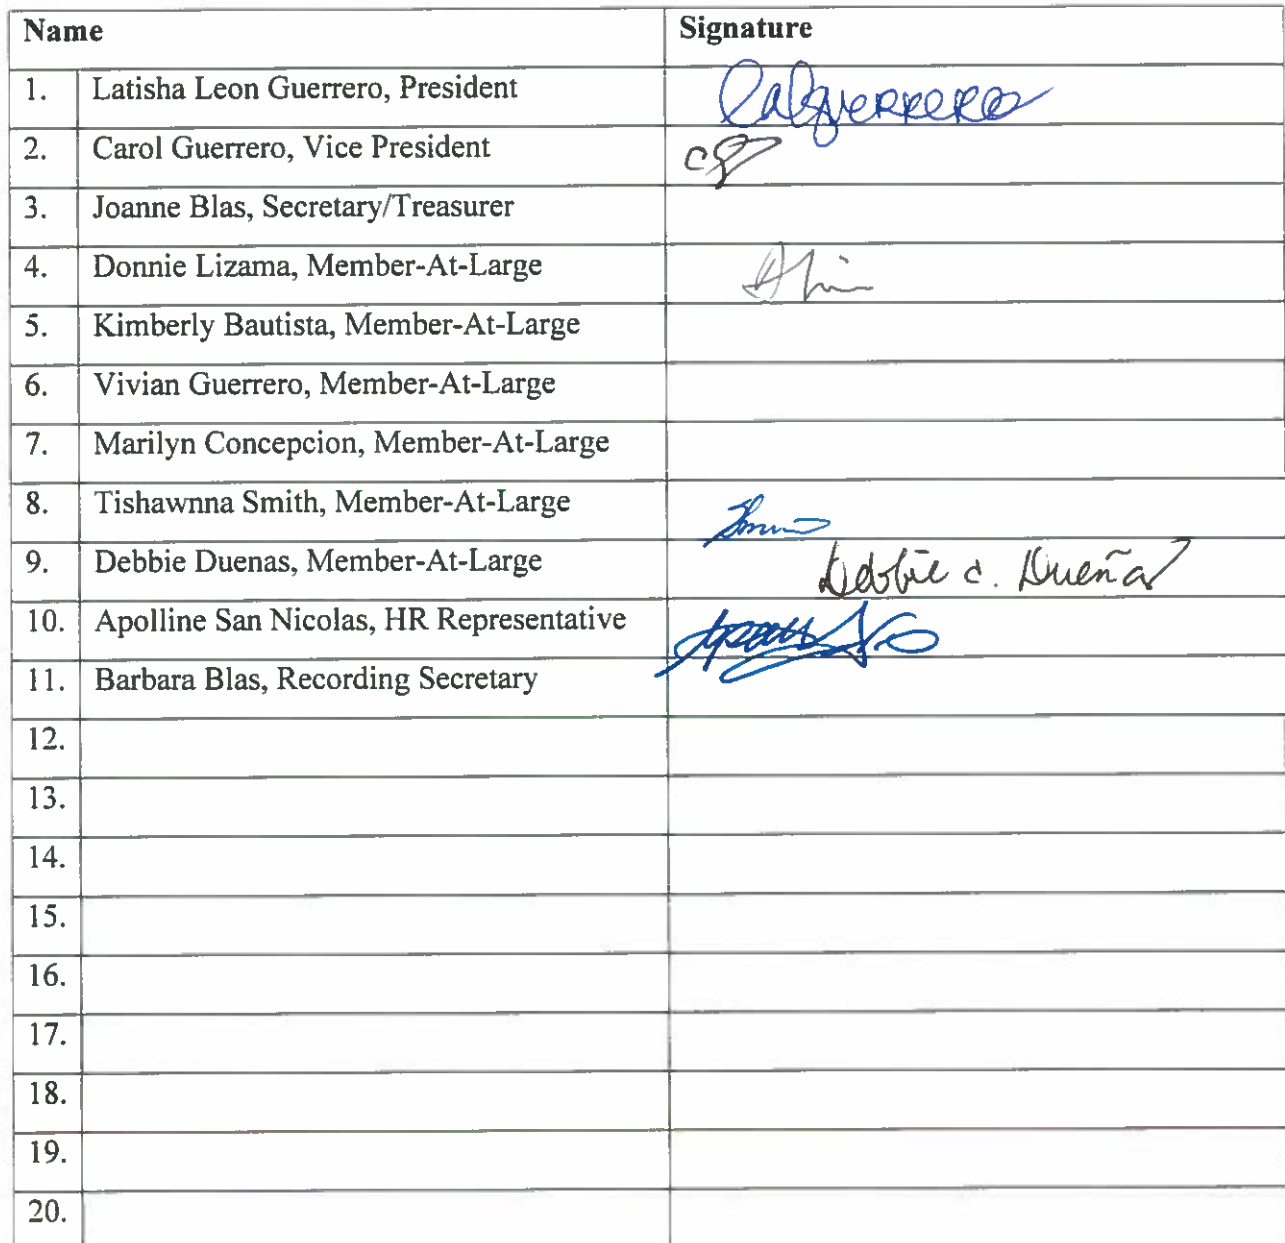 Name Signature
1. Latisha Leon Guerrero, President
2. Carol Guerrero, Vice President
3. Joanne Blas, Secretary/Treasurer
4. Donnie Lizama, Member-At-Large
5. Kimberly Bautista, Member-At-Large
6. Vivian Guerrero, Member-At-Large
7. Marilyn Concepcion, Member-At-Large
8. Tishawnna Smith, Member-At-Large
9. Debbie Duenas, Member-At-Large Debbie C. Dueñas
10. Apolline San Nicolas, HR Representative
11. Barbara Blas, Recording Secretary
12.
13.
14.
15.
16.
17.
18.
19.
20.